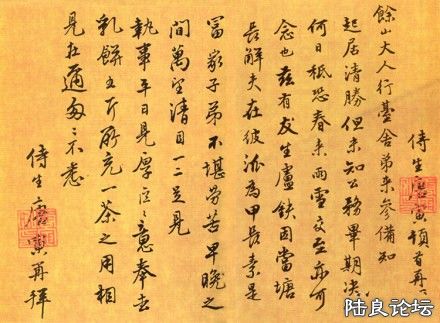 侍生唐寅頓首再
餘山大人行臺舍弟來參備知
起居清勝但未知公務畢期決
何日祗恐春來雨雪交至亦可
念也茲有友生盧鈇因當塘
長解夫在彼派為甲長素是
冨家子弟不堪勞苦早晚之
間萬望清目一二足見
執事平日見厚區區之意奉去
乳餅五斤所充一茶之用相
見在邇匆匆不悉
侍生唐寅再拜
陆良论坛